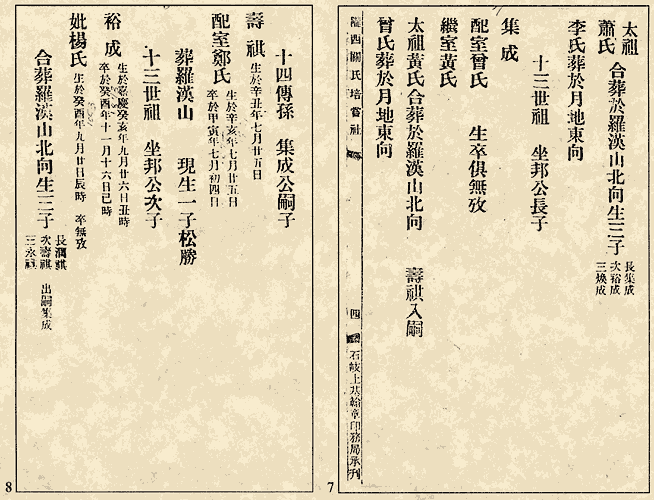 太祖
蕭氏 合葬於羅漢山北向生三子 長集成 次裕成 三煥成
李氏葬於月地東向
十三世祖 坐邦公長子
集成
配室曾氏 生卒俱無攷
繼室黃氏
太祖黃氏合葬於羅漢山北向 壽祺入嗣
曾氏葬於月地東向
隴西關氏培嘗社 四 石岐上基翰章印務局承刊
7
十四傳孫 集成公嗣子
壽祺 生於辛丑年七月廿五日
配室鄭氏 生於辛亥年七月廿五日 卒於甲寅年七月初四日
葬羅漢山 現生一子松勝
十三世祖 坐邦公次子
裕成 生於嘉慶癸亥年九月廿六日丑時 卒於癸酉年十一月十六日巳時
妣楊氏 生於癸酉年九月廿日辰時 卒無攷
合葬羅漢山北向生三子 長潤祺 次壽祺 出嗣集成 三永祺
8